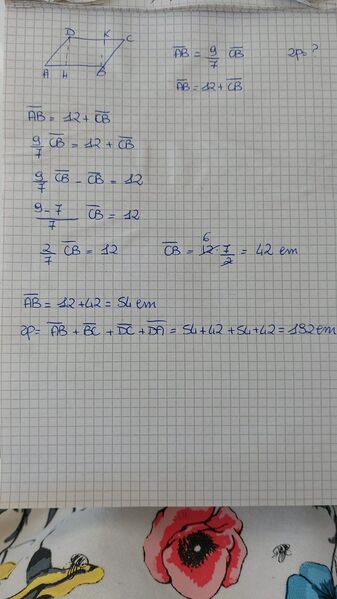 D K C
A H B
AB = 9/7 CB 2p?
AB = 12 + CB
AB = 12 + CB
9/7 CB = 12 + CB
9/7 CB - CB = 12
9-7/7 CB = 12
2/7 CB = 12 CB = 12 6 · 7/2 = 42 cm
AB = 12 + 42 = 54 cm
2p = AB + BC + DC + DA = 54 + 42 + 54 + 42 = 192 cm